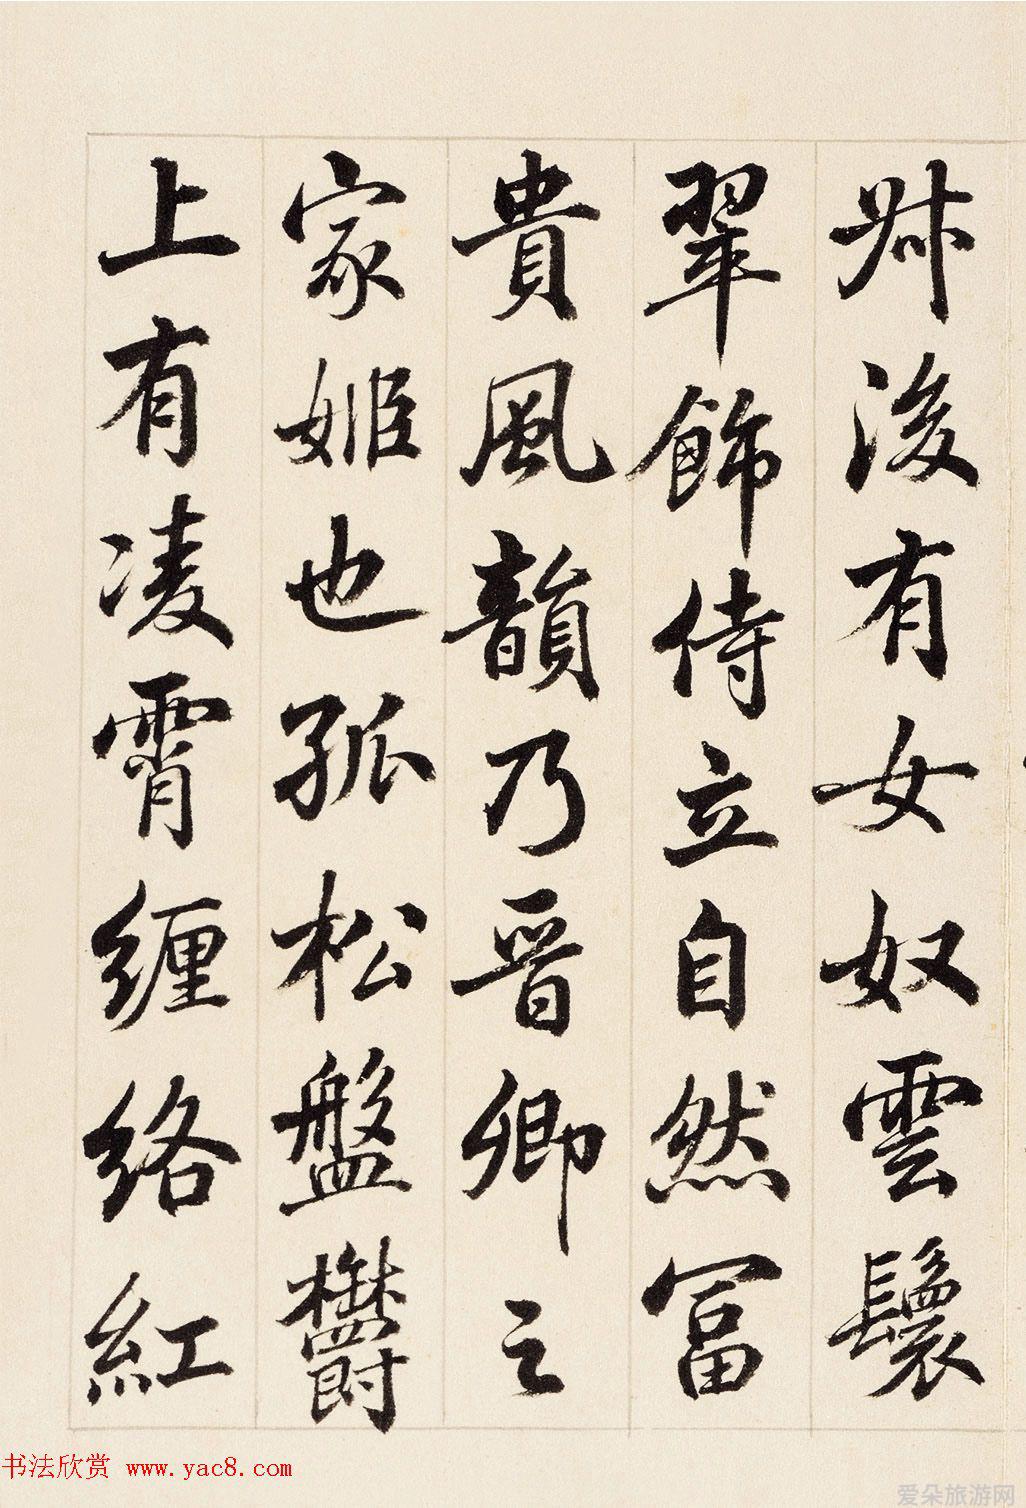 丱後有女奴雲鬟
翠飾侍立自然富
貴風韻乃晉卿之
家姬也孤松盤欝
上有凌霄纏絡紅
书法欣赏 www.yac8.com
爱朵旅游网